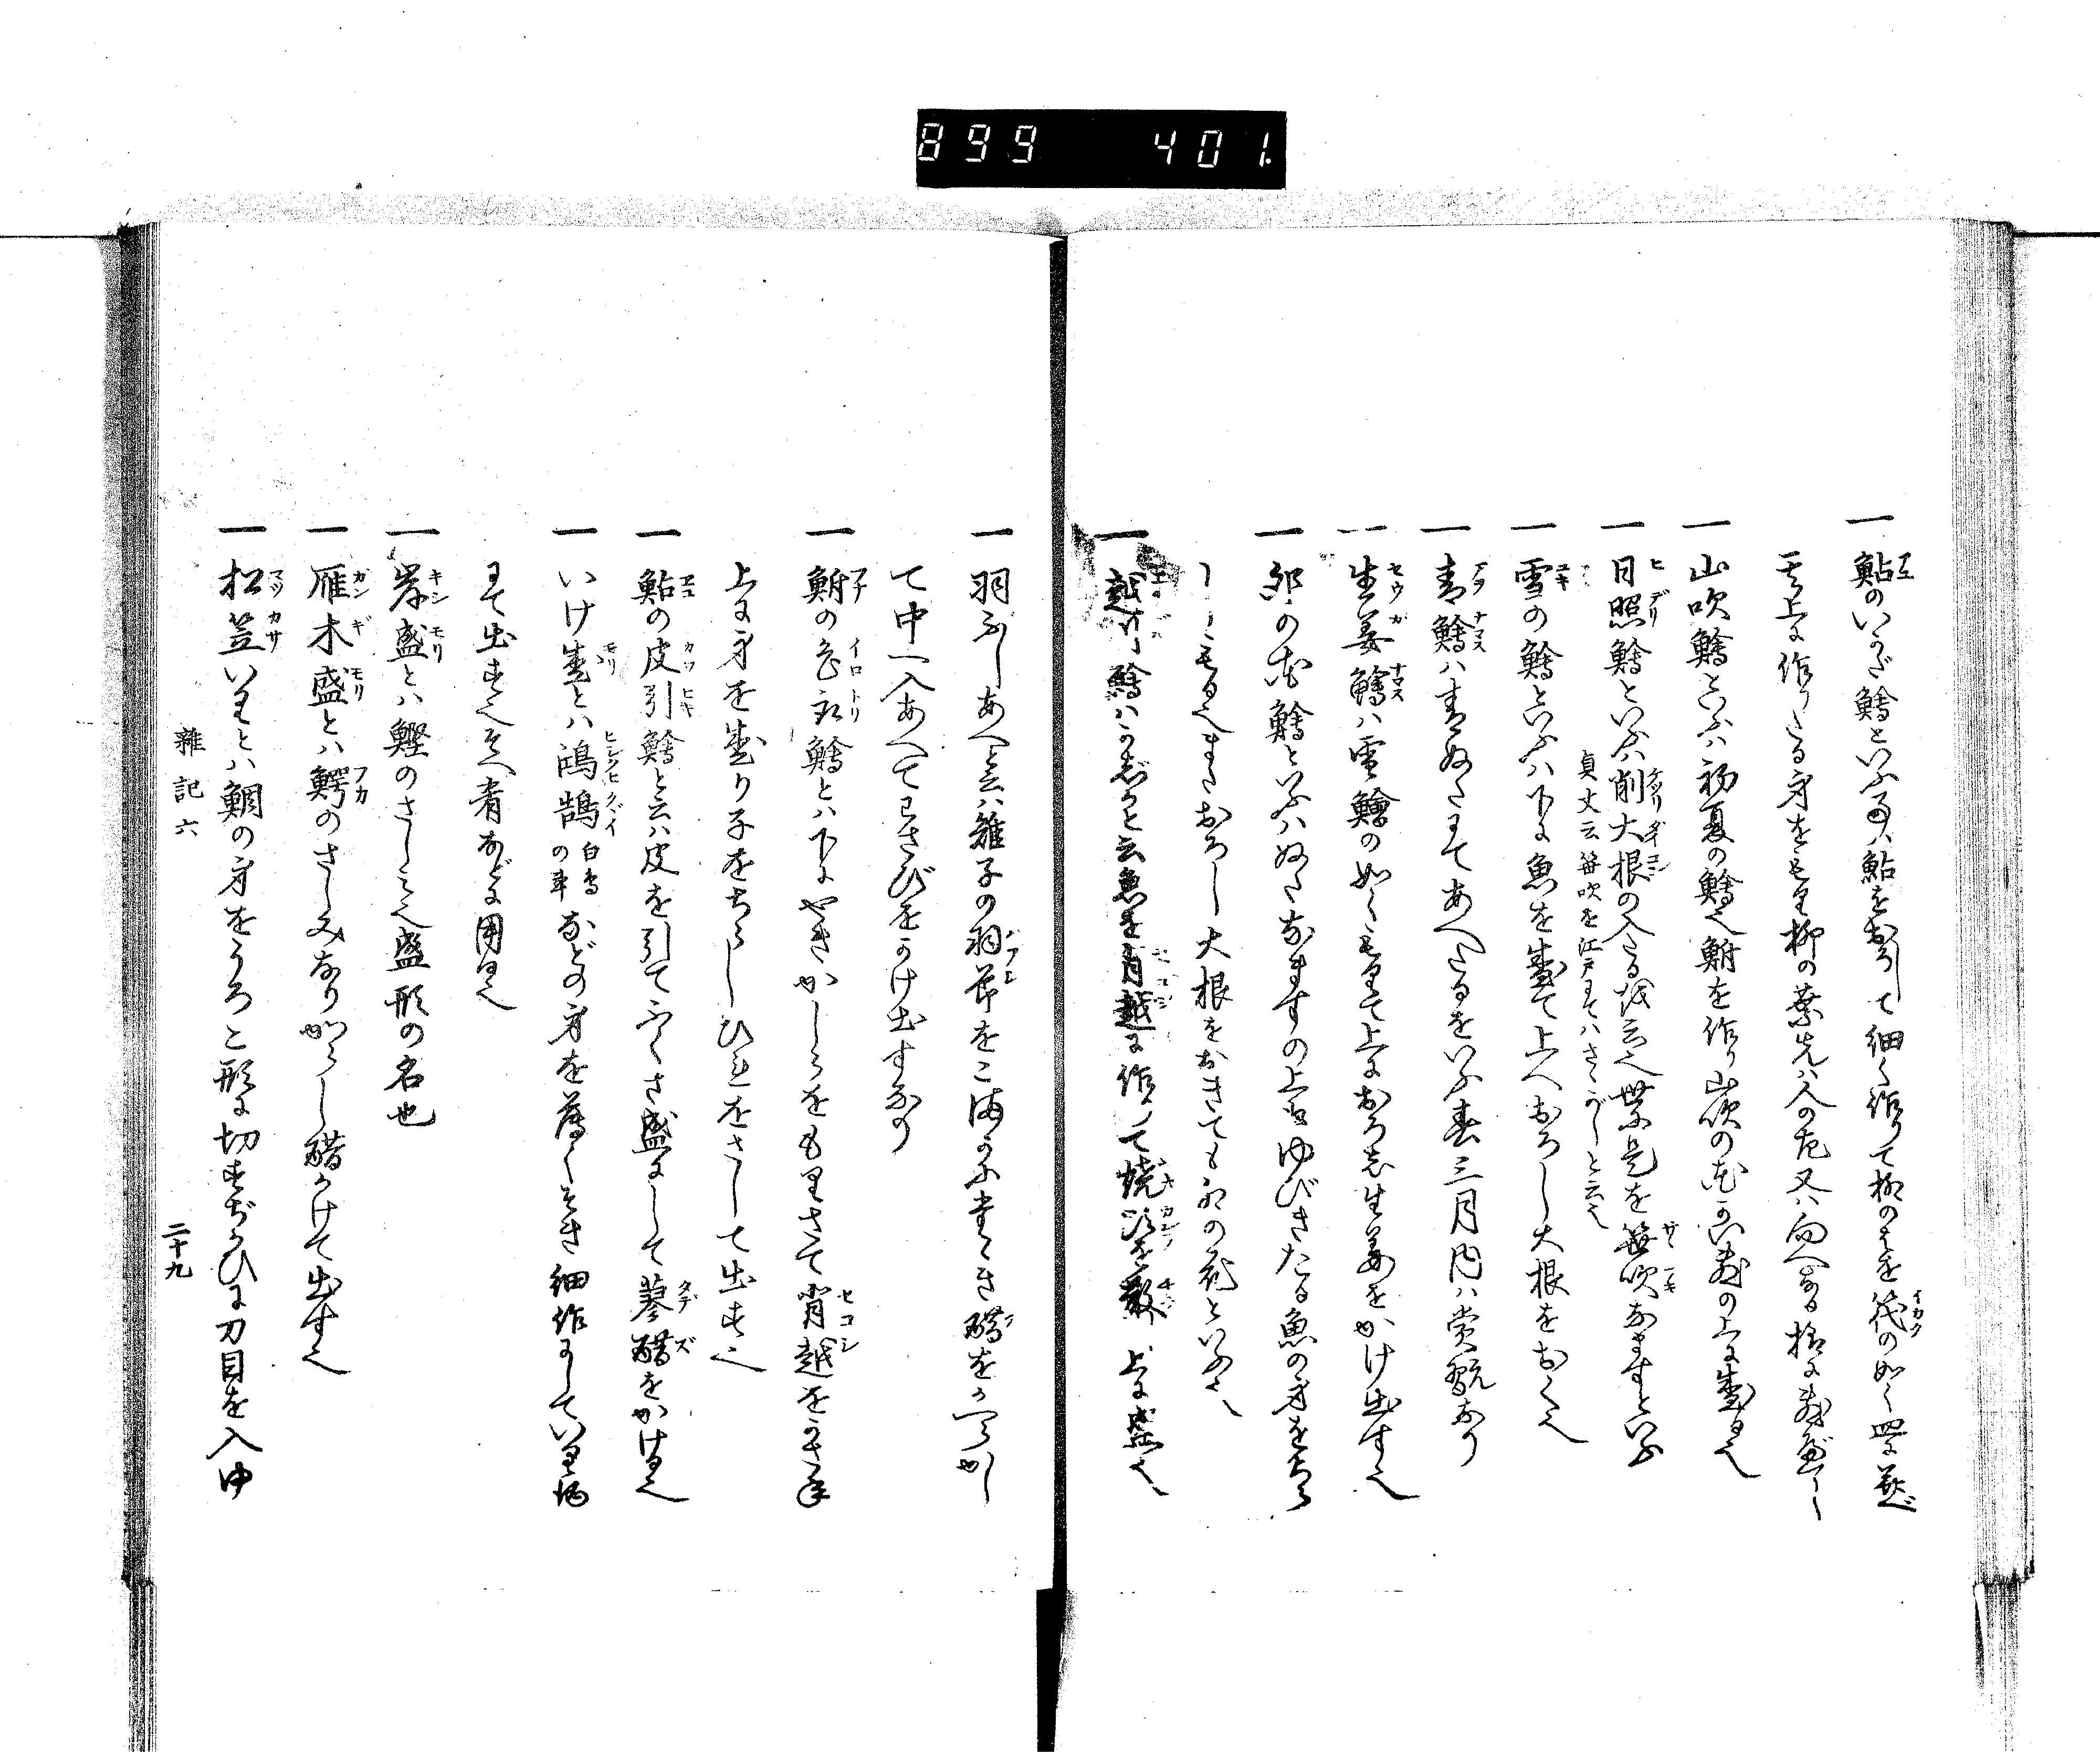 899 401
一 鮎のいかだ鱠といふハ鮎をおろして細く作りて柳のはを筏の如く皿に並べ
其上に作りたる身をもる柳の葉先ハ人の左又ハ向へなる様に
一 山吹鱠といふハ初夏の鱠也鮒を作り山吹の花かいしきの上に盛る也
一 日照鱠といふハ削大根の入たるを云也世に是を笹吹なますといふ
貞丈云笹吹を江戸にてハさゝがしと云也
一 雪の鱠といふハ下に魚を盛て上へおろし大根をおく也
一 青鱠ハ青ぬたにてあへたるをいふ春三月内ハ賞翫なり
一 生姜鱠ハ雪鱠の如くもりて上におろし生姜をかけ出す也
一 卯の花鱠といふハぬたなますの上にゆびきたる魚の身をちら
しもる也またおろし大根をおきても卯の花といふ也
一 越川鱠ハかじかと云魚を背越に作りて焼頭を上に盛也
一 羽ぶしあへと云ハ雉子の羽節をこまかにたゝき醋をかへらかし
て中へ入あへてわさびをかけ出すなり
一 鮒の色取鱠とハ下にやきかしらをもりさて背越をかさね
上に身を盛り子をちらしひれをさして出す也
一 鮎の皮引鱠と云ハ皮を引てふくさ盛にして蓼醋をかける也
一 いけ盛とハ鴻鵠白鳥の事などの身を薄くそぎ細作にしていり酒
にて出す也そへ肴などに用る也
一 岸盛とハ鰹のさしみ也盛形の名也
一 雁木盛とハ鰐のさしみなりからし醋かけて出す也
一 松笠いりとハ鯛の身をうろこ形に切すぢかひに刀目を入ゆ
雜記六 二十九